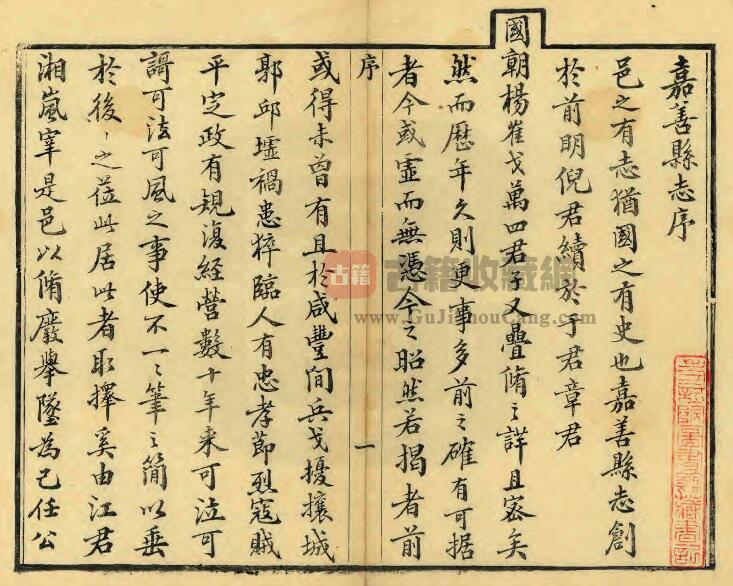 嘉善縣志序
邑之有志猶國之有史也嘉善縣志創
於前明倪君續於于君章君
國朝楊崔戈萬四君子又疊脩之詳且密矣
然而歷年久則更事多前之確有可據
者今或虛而無憑今之昭然若揭者前
序
一
或得未曾有且於咸豐間兵戈擾攘城
郭邱墟禍患猝臨人有忠孝節烈寇賊
平定政有規復經營數十年來可泣可
謌可法可風之事使不一〻筆之簡以垂
於後〻之蒞此居此者取擇奚由江君
湘嵐宰是邑以脩廢舉墜為己任公
古籍
古籍收藏網
www.GuJiShouCang.com